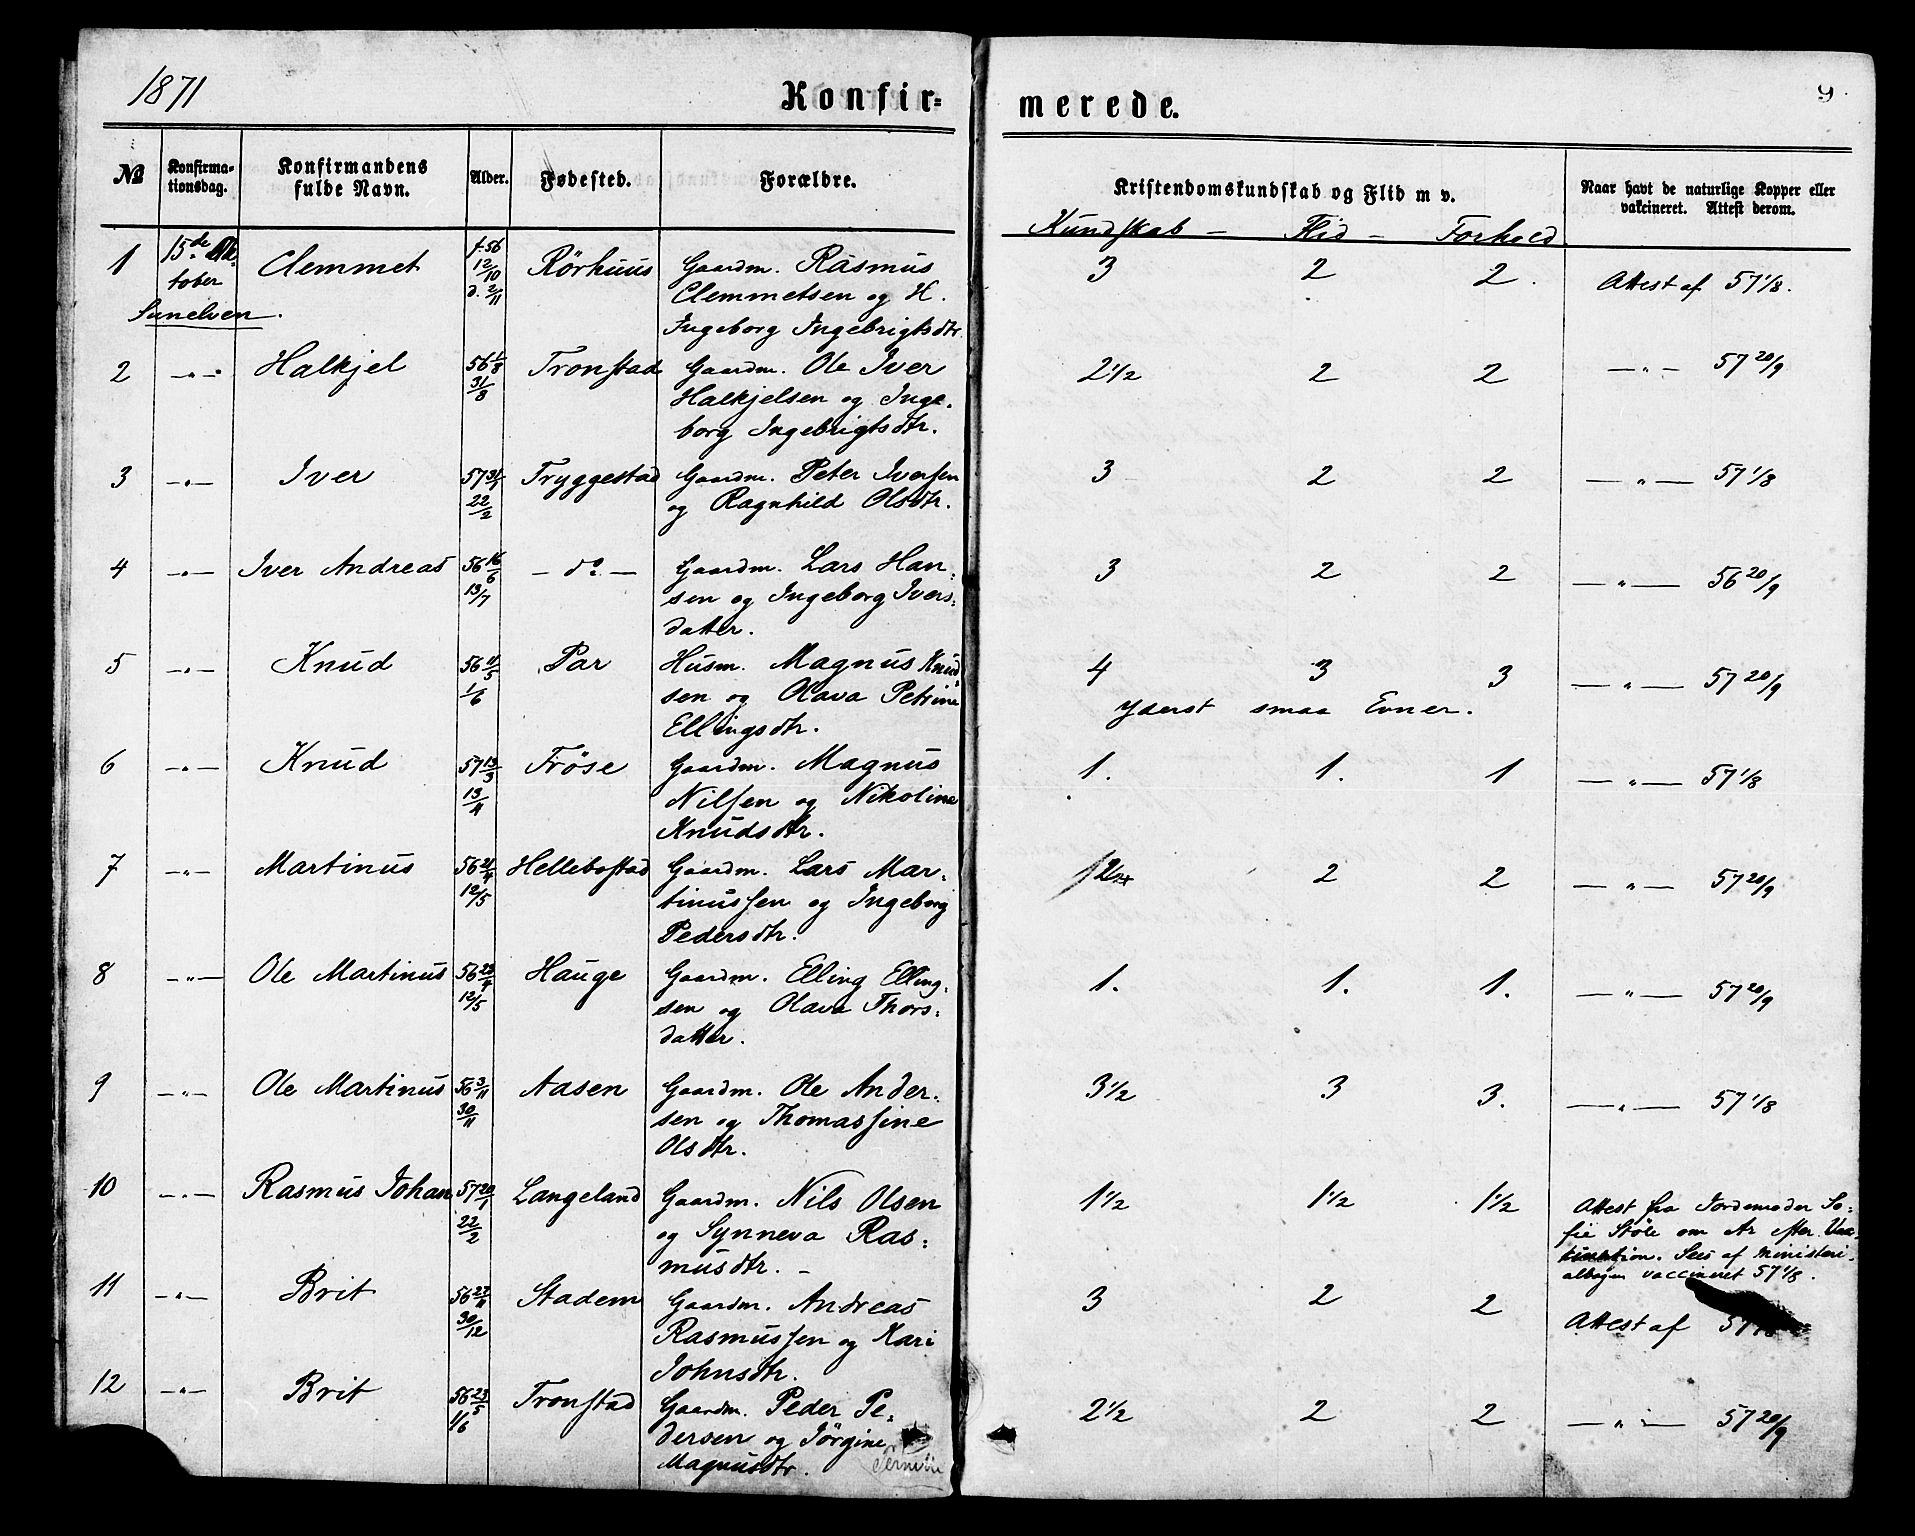 1871
Konfir=
merede.
9.
№
Konfirma=
tionsdag.
Konfirmandens
fulde Navn.
Alder.
Fødested.
Forældre.
Kristendomskundskab og Flid m v.
Naar havt de naturlige Kopper eller
vakcineret. Attest derom.
Kundskab – Flid – Forhold
1 15de Ok= Clemmet f. 56 Rörhuus Gaardm. Rasmus 3 2 2. Attest af 57 1/8.
tober 12/10 Clemmetsen og H.
Sunelven. d. 2/11 Ingeborg Ingebrigtsdtr
2 –„– Halkjel 56 1/8 Tronstad Gaardm. Ole Iver 2 1/2 2 2 –„– 57 20/9
31/8 Halkjelsen og Inge=
borg Ingebrigtsdtr.
3 –„– Iver 57 31/1 Tryggestad Gaardm. Peter Iversen 3 2 2 –„– 57 1/8
22/2 og Ragnhild Olsdtr.
4 –„– Iver Andreas 56 16/6 – do – Gaardm. Lars Han= 3 2 2 –„– 56 20/9
13/7 sen og Ingeborg Ivers=
datter.
5 –„– Knud 56 11/5 Par Husm. Magnus Knud= 4 3 3 –„– 57 20/9
1/6 sen og Olava Petrine yderst smaa Evner.
Ellingsdtr.
6 –„– Knud 57 13/3 Fröse Gaardm. Magnus 1. 1. 1 –„– 57 1/8
13/4 Nilsen og Nikoline
Knudsdtr.
7 –„– Martinus 56 21/4 Hellebostad Gaardm. Lars Mar= 2 2 –„– 57 20/9
12/5 tinussen og Ingeborg
Pedersdtr.
8 –„– Ole Martinus 56 23/4 Hauge Gaardm. Elling Elling= 1. 1. 1. –„– 57 20/9
12/5 sen og Olava Thors=
datter.
9 –„– Ole Martinus 56 3/11 Aasen Gaardm. Ole Ander= 3 1/2 3 3. –„– 57 1/8
30/11 sen og Thomassine
Olsdtr.
10 –„– Rasmus Johan 57 20/1 Langeland Gaardm. Nils Olsen 1 1/2 1 1/2 1 1/2 Attest fra Jordemoder So=
22/2 og Synneva Ras= fie Stöle om Ar efter Vak=
musdtr. – cination. Sees af Ministeri=
albogen vaccineret 57 1/8.
11 –„– Brit 56 23/11 Stadem Gaardm. Andreas 3 2 2 Attest af 57
30/12 Rasmussen og Kari
Johnsdtr.
12 –„– Brit 56 23/5 Tronstad Gaardm. Peder Pe= 2 1/2 2 2 –„– 57 20/9
1/6 dersen og Jörgine
Magnusdtr.